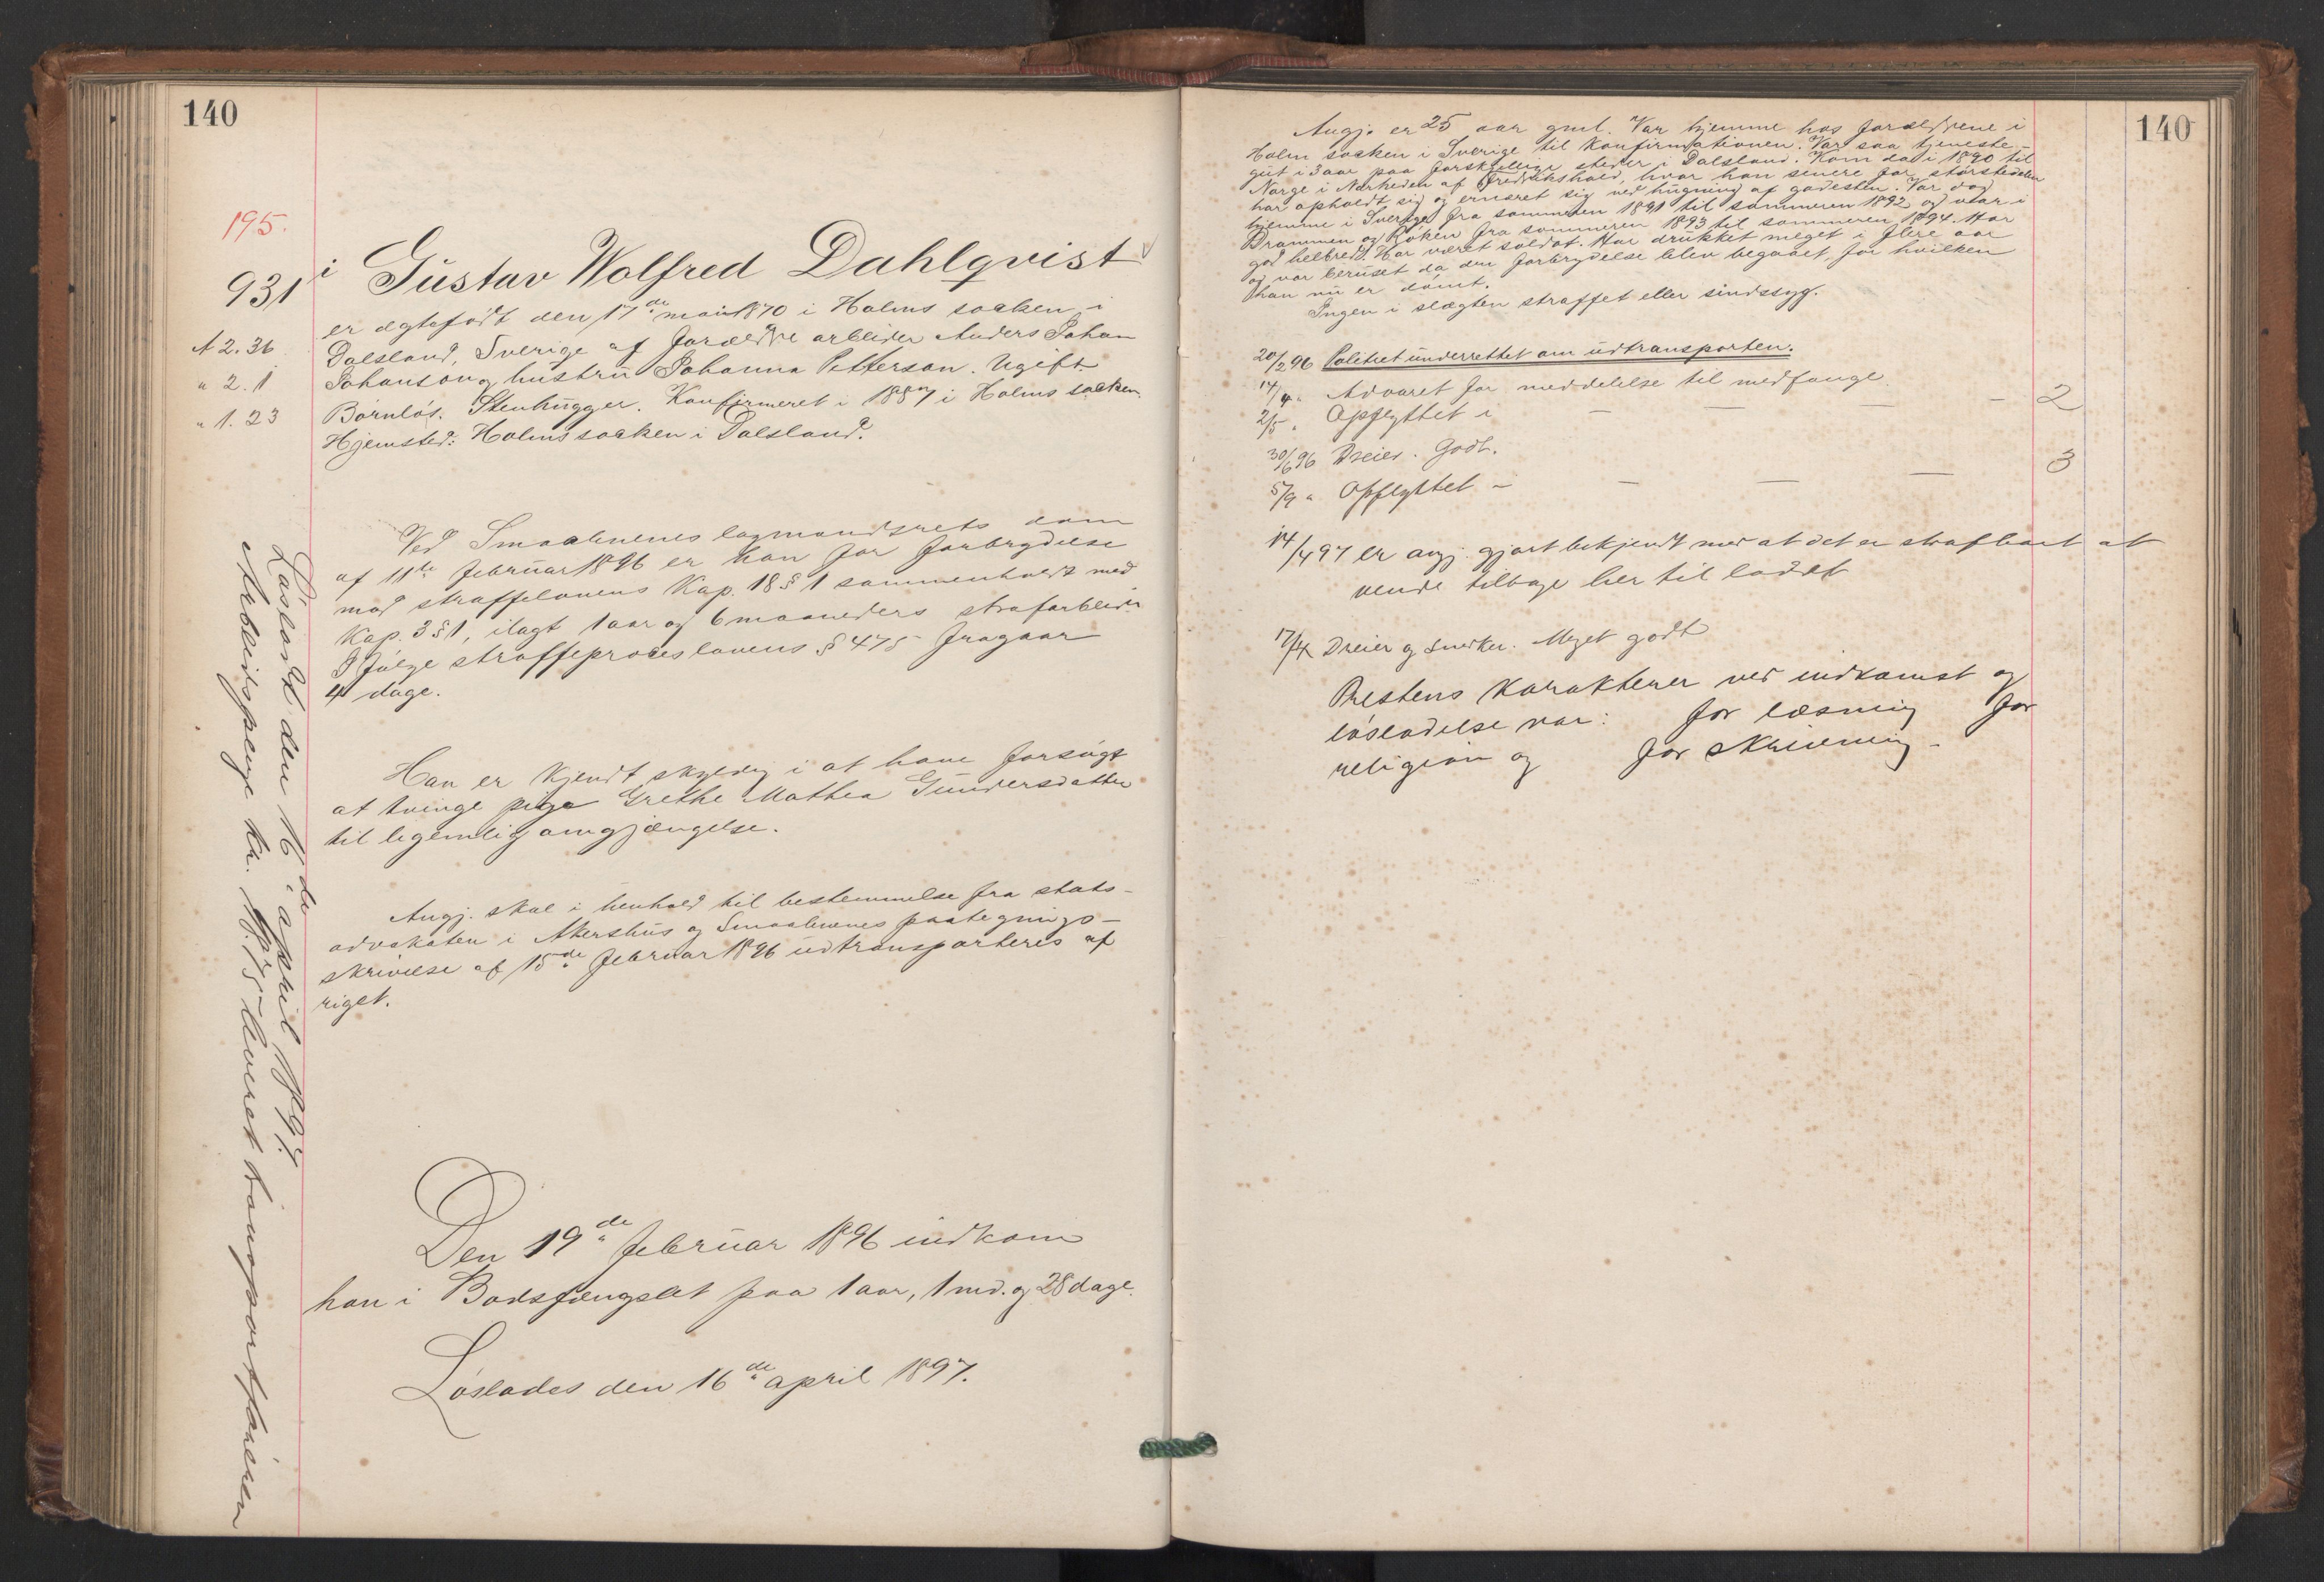 140
195.
931
Gustav Wolfred Dahlqvist
er ægtefødt den 17de mai 1870 i Holms socken i
A 2. 36
Dalsland, Sverige af forældre arbeider Anders Johan
" 2. 1
Johanson og hustru Johanna Petterson. Ugift.
" 1. 23
Børnløs. Stenhugger. Konfirmeret i 1887 i Holms socken.
Hjemsted: Holms socken i Dalsland.
Ved Smaalenenes lagmandsrets dom
af 11te februar 1896 er han for forbrydelse
mod straffelovens Kap. 18 § 1 sammenholdt med
Kap. 3 § 1, ilagt 1 aar og 6 maaneders strafarbeide
I følge straffeproceslovens § 475 fragaar
4 dage.
Han er kjendt skyldig i at have forsøgt
at tvinge pige Grethe Mathea Gundersdatter
til legemlig omgjængelse.
Angj. skal i henhold til bestemmelse fra stats-
advokaten i Akershus og Smaalenenes paategnings-
skrivelse af 15de februar 1896 udtransporteres af
riget.
Den 19de februar 1896 indkom
han i Bodsfængslet paa 1 aar, 1 md. og 28 dage.
Løslades den 16de april 1897.
Løsladt den 16de april 1897.
Arbeidspenge kr. 18.75 leveret transportføreren
140
Angj. er 25 aar gml. Var hjemme hos forældrene i
Holm socken i Sverige til konfirmationen. Var saa tjeneste-
gut i 3 aar paa forskjellige steder i Dalsland. Kom da i 1890 til
Norge i Nærheden af Fredrikshald, hvor han senere for størstedelen
har opholdt sig og ernæret sig ved hugning af gadesten. Var dog
hjemme i Sverige fra sommeren 1891 til sommeren 1892 og var i
Drammen og Røken fra sommeren 1893 til sommeren 1894. Har
god helbred. Har været soldat. Har drukket meget i flere aar
og var beruset da den forbrydelse blev begaaet, for hvilken
han nu er dømt.
Ingen i slægten straffet eller sindssyg.
20/2 96 Politiet underrettet om udtransporten.
14/4 " Advaret for meddelelse til medfange
2/5 " Opflyttet i — — — — 2
30/6 96 Dreier. Godt.
5/9 " Opflyttet — — — — 3
14/4 97 er angj. gjort bekjendt med at det er strafbart at
vende tilbage her til landet
17/4 Dreier og Snedker. Meget godt
Prestens karakterer ved indkomst og
løsladelse var: for læsning for
religion og for skrivning.